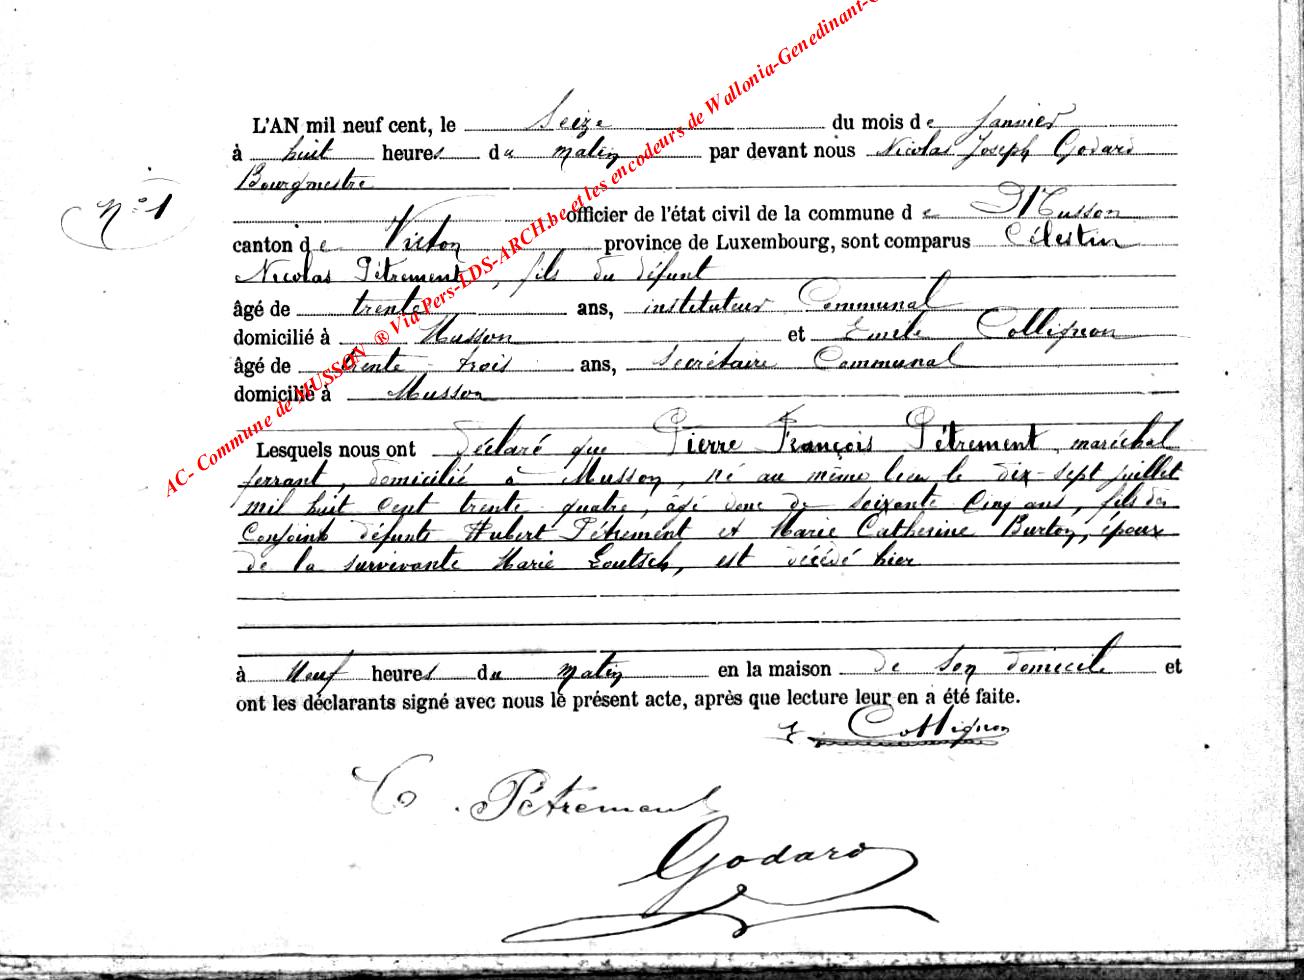 L'AN mil neuf cent, le Seize du mois de Janvier
à huit heures du matin par devant nous Nicolas Joseph Godard
Bourgmestre
N° 1
officier de l'état civil de la commune de Musson
canton de Virton province de Luxembourg, sont comparus Célestin
Nicolas Pétrement, fils du défunt
âgé de trente ans, instituteur Communal
domicilié à Musson et Emile Collignon
âgé de trente trois ans, secrétaire Communal
domicilié à Musson
Lesquels nous ont déclaré que Pierre François Pétrement, maréchal
ferrant, domicilié à Musson, né au même lieu, le dix-sept juillet
mil huit cent trente quatre, âgé donc de soixante cinq ans, fils des
Conjoints défunts Hubert Pétrement et Marie Catherine Burton, époux
de la survivante Marie Loutsch, est décédé hier
à Neuf heures du matin en la maison de son domicile et
ont les déclarants signé avec nous le présent acte, après que lecture leur en a été faite.
E. Collignon
C. Pétrement
Godard
AC- Commune de MUSSON ® Via Pers-LDS-ARCH.be et les encodeurs de Wallonia-Genedinant-